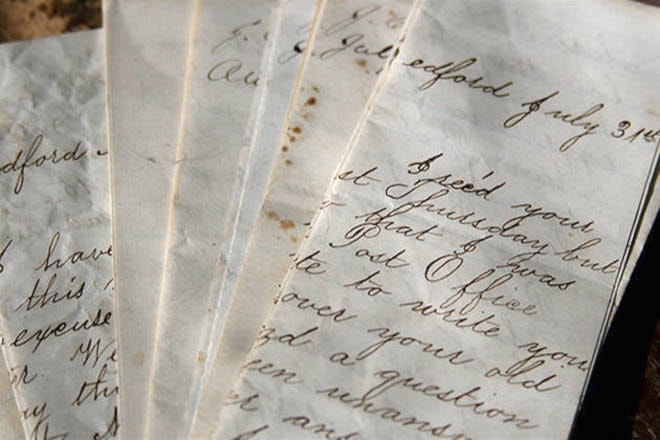 dford
I have
this
excuse
r. We
y thi
J.
Au
J.
J. Jul
edford July 31st
I rec'd your
st Thursday but
that I was
Post Office
te to write you
over your old
nd a question
een unansw
er an